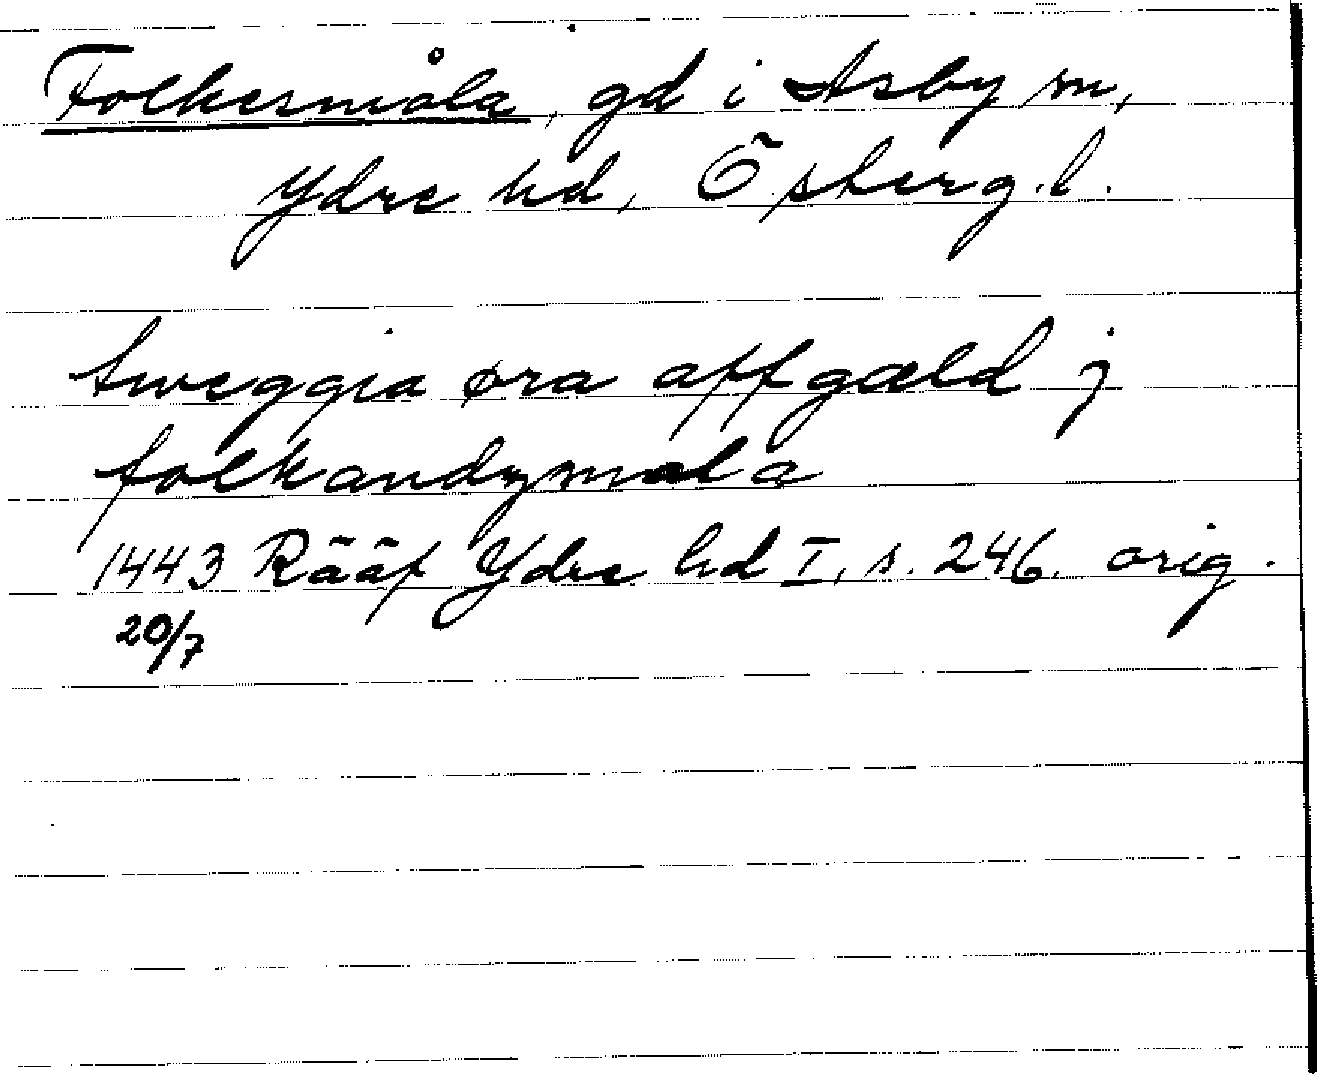 Folkesmåla, gd i Asby sn,
Ydre hd, Östergl.
tweggia øra affgæld j
folkandzmala
1443 Rääf Ydre hd I, s. 246. orig.
20/7